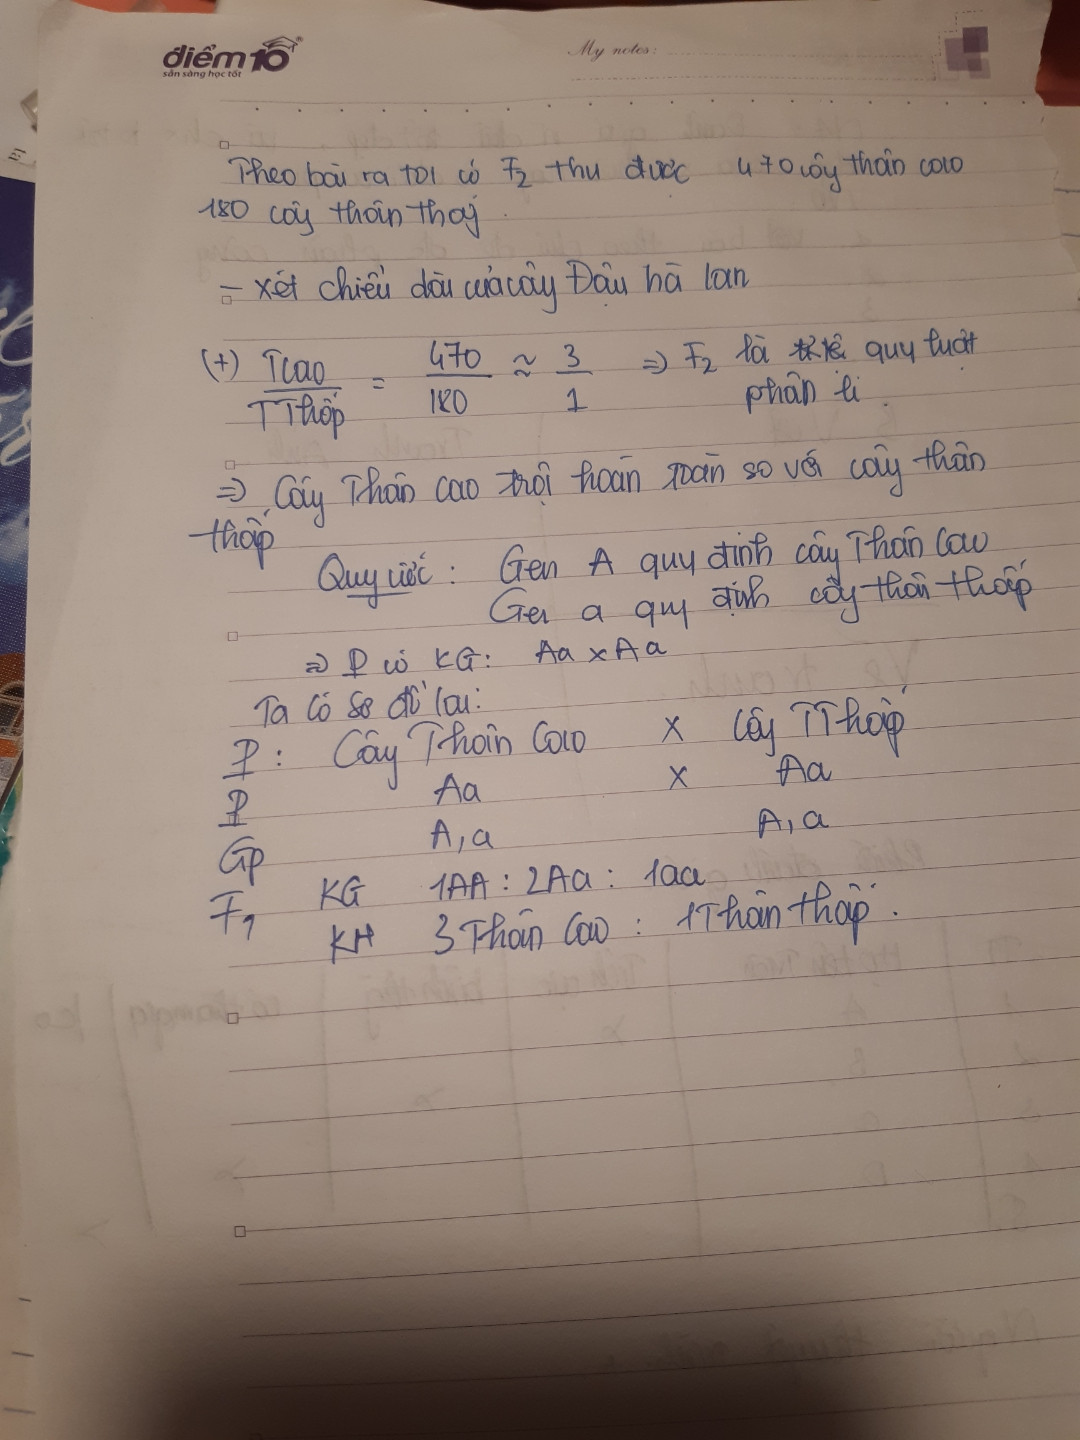 điểm10
sẵn sàng học tốt
My notes:
Theo bài ra tơi có F2 thu được 470 cây thân cao
180 cây thân thấp
- xét chiều dài của cây Đậu hà lan
(+) Tcao / TThấp = 470 / 180 ≈ 3 / 1 => F2 là quy luật
phân li.
=> Cây Thân cao trội hoàn toàn so với cây thân
thấp
Quy ước: Gen A quy định cây Thân Cao
Gen a quy định cây thân thấp
=> P có KG: Aa x Aa
Ta có sơ đồ lai:
P: Cây Thân Cao x Cây TThấp
P Aa x Aa
Gp A,a A,a
F1 KG 1AA : 2Aa : 1aa
KH 3 Thân Cao : 1 Thân thấp.